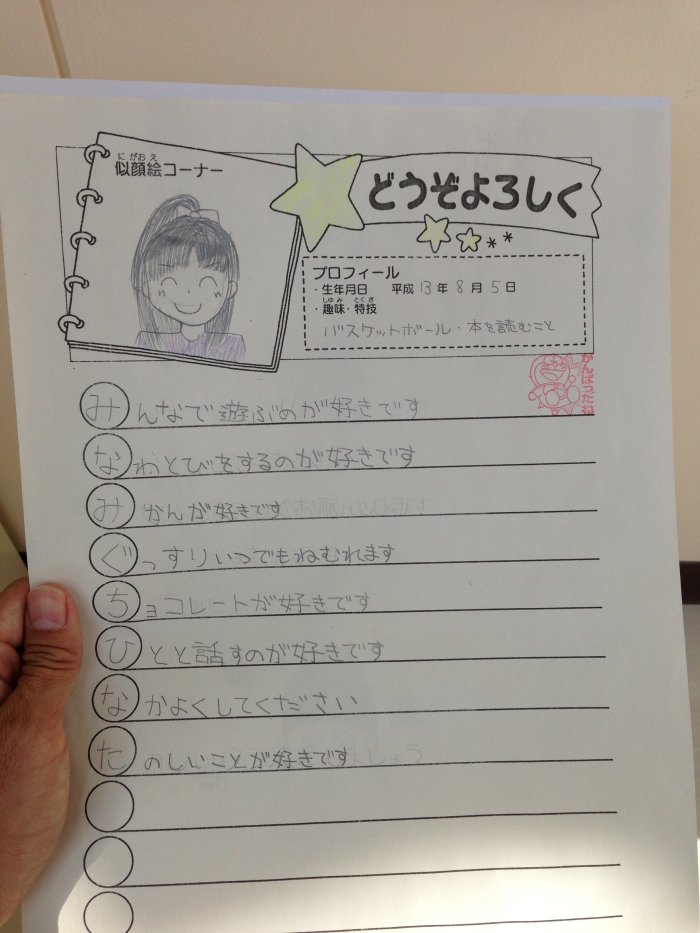 にがおえ
似顔絵コーナー
どうぞよろしく
プロフィール
・生年月日 平成13年8月5日
しゅみ とくぎ
・趣味・特技
バスケットボール・本を読むこと
がんばったね
みんなで遊ぶのが好きです
なわとびをするのが好きです
みかんが好きです
ぐっすりいつでもねむれます
チョコレートが好きです
ひとと話すのが好きです
なかよくしてください
たのしいことが好きです